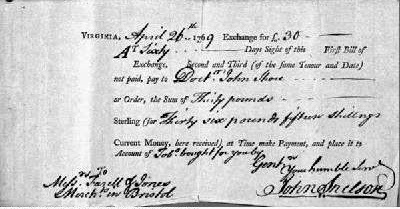 VIRGINIA, April 26th 1769 Exchange for £.30
AT Sixty Days Sight of this First Bill of
Exchange, Second and Third (of the same Tenour and Date)
not paid, pay to Doctr. John Shore
or Order, the Sum of Thirty pounds
Sterling (for Thirty six pounds fifteen Shillings
Current Money, here received) at Time make Payment, and place it to
Account of Tobo. bought for you by
Gentn.
Your humble Servt.
To
Messrs. Farell & Jones
Merchts. in Bristol
John Snelson